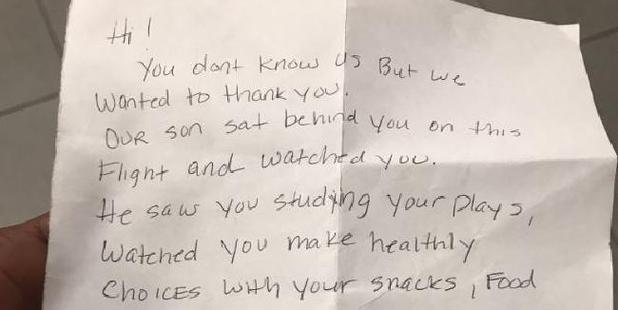 Hi!
You dont know us But we
Wanted to thank you.
OUR son sat behind you on this
Flight and watched you.
He saw you studying your plays,
Watched you make healthly
CHOICES with your snacks, Food